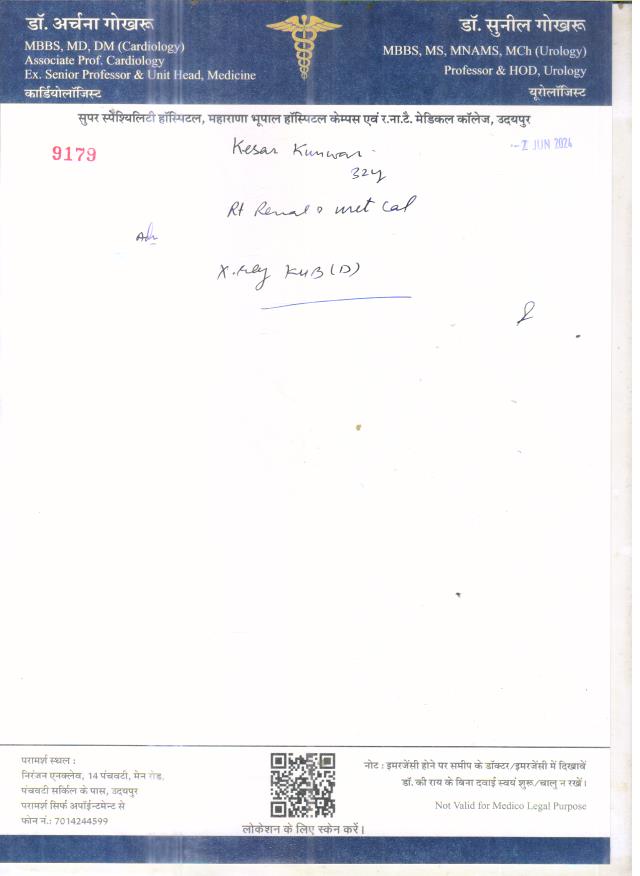 डॉ. अर्चना गोखरू
MBBS, MD, DM (Cardiology)
Associate Prof. Cardiology
Ex. Senior Professor & Unit Head, Medicine
कार्डियोलॉजिस्ट
डॉ. सुनील गोखरू
MBBS, MS, MNAMS, MCh (Urology)
Professor & HOD, Urology
यूरोलॉजिस्ट
सुपर स्पैश्यिलिटी हॉस्पिटल, महाराणा भूपाल हॉस्पिटल केम्पस एवं र.ना.टै. मेडिकल कॉलेज, उदयपुर
9179
JUN 2024
Kesar Kunwar
32y
Rt Renal & uret Cal
Adv
X-Ray KUB (D)
परामर्श स्थल :
निरंजन एनक्लेव, 14 पंचवटी, मेन रोड,
पंचवटी सर्किल के पास, उदयपुर
परामर्श सिर्फ अपॉईन्टमेन्ट से
फोन नं.: 7014244599
लोकेशन के लिए स्केन करें।
नोट : इमरजेंसी होने पर समीप के डॉक्टर/इमरजेंसी में दिखावें
डॉ. की राय के बिना दवाई स्वयं शुरू/चालु न रखें।
Not Valid for Medico Legal Purpose